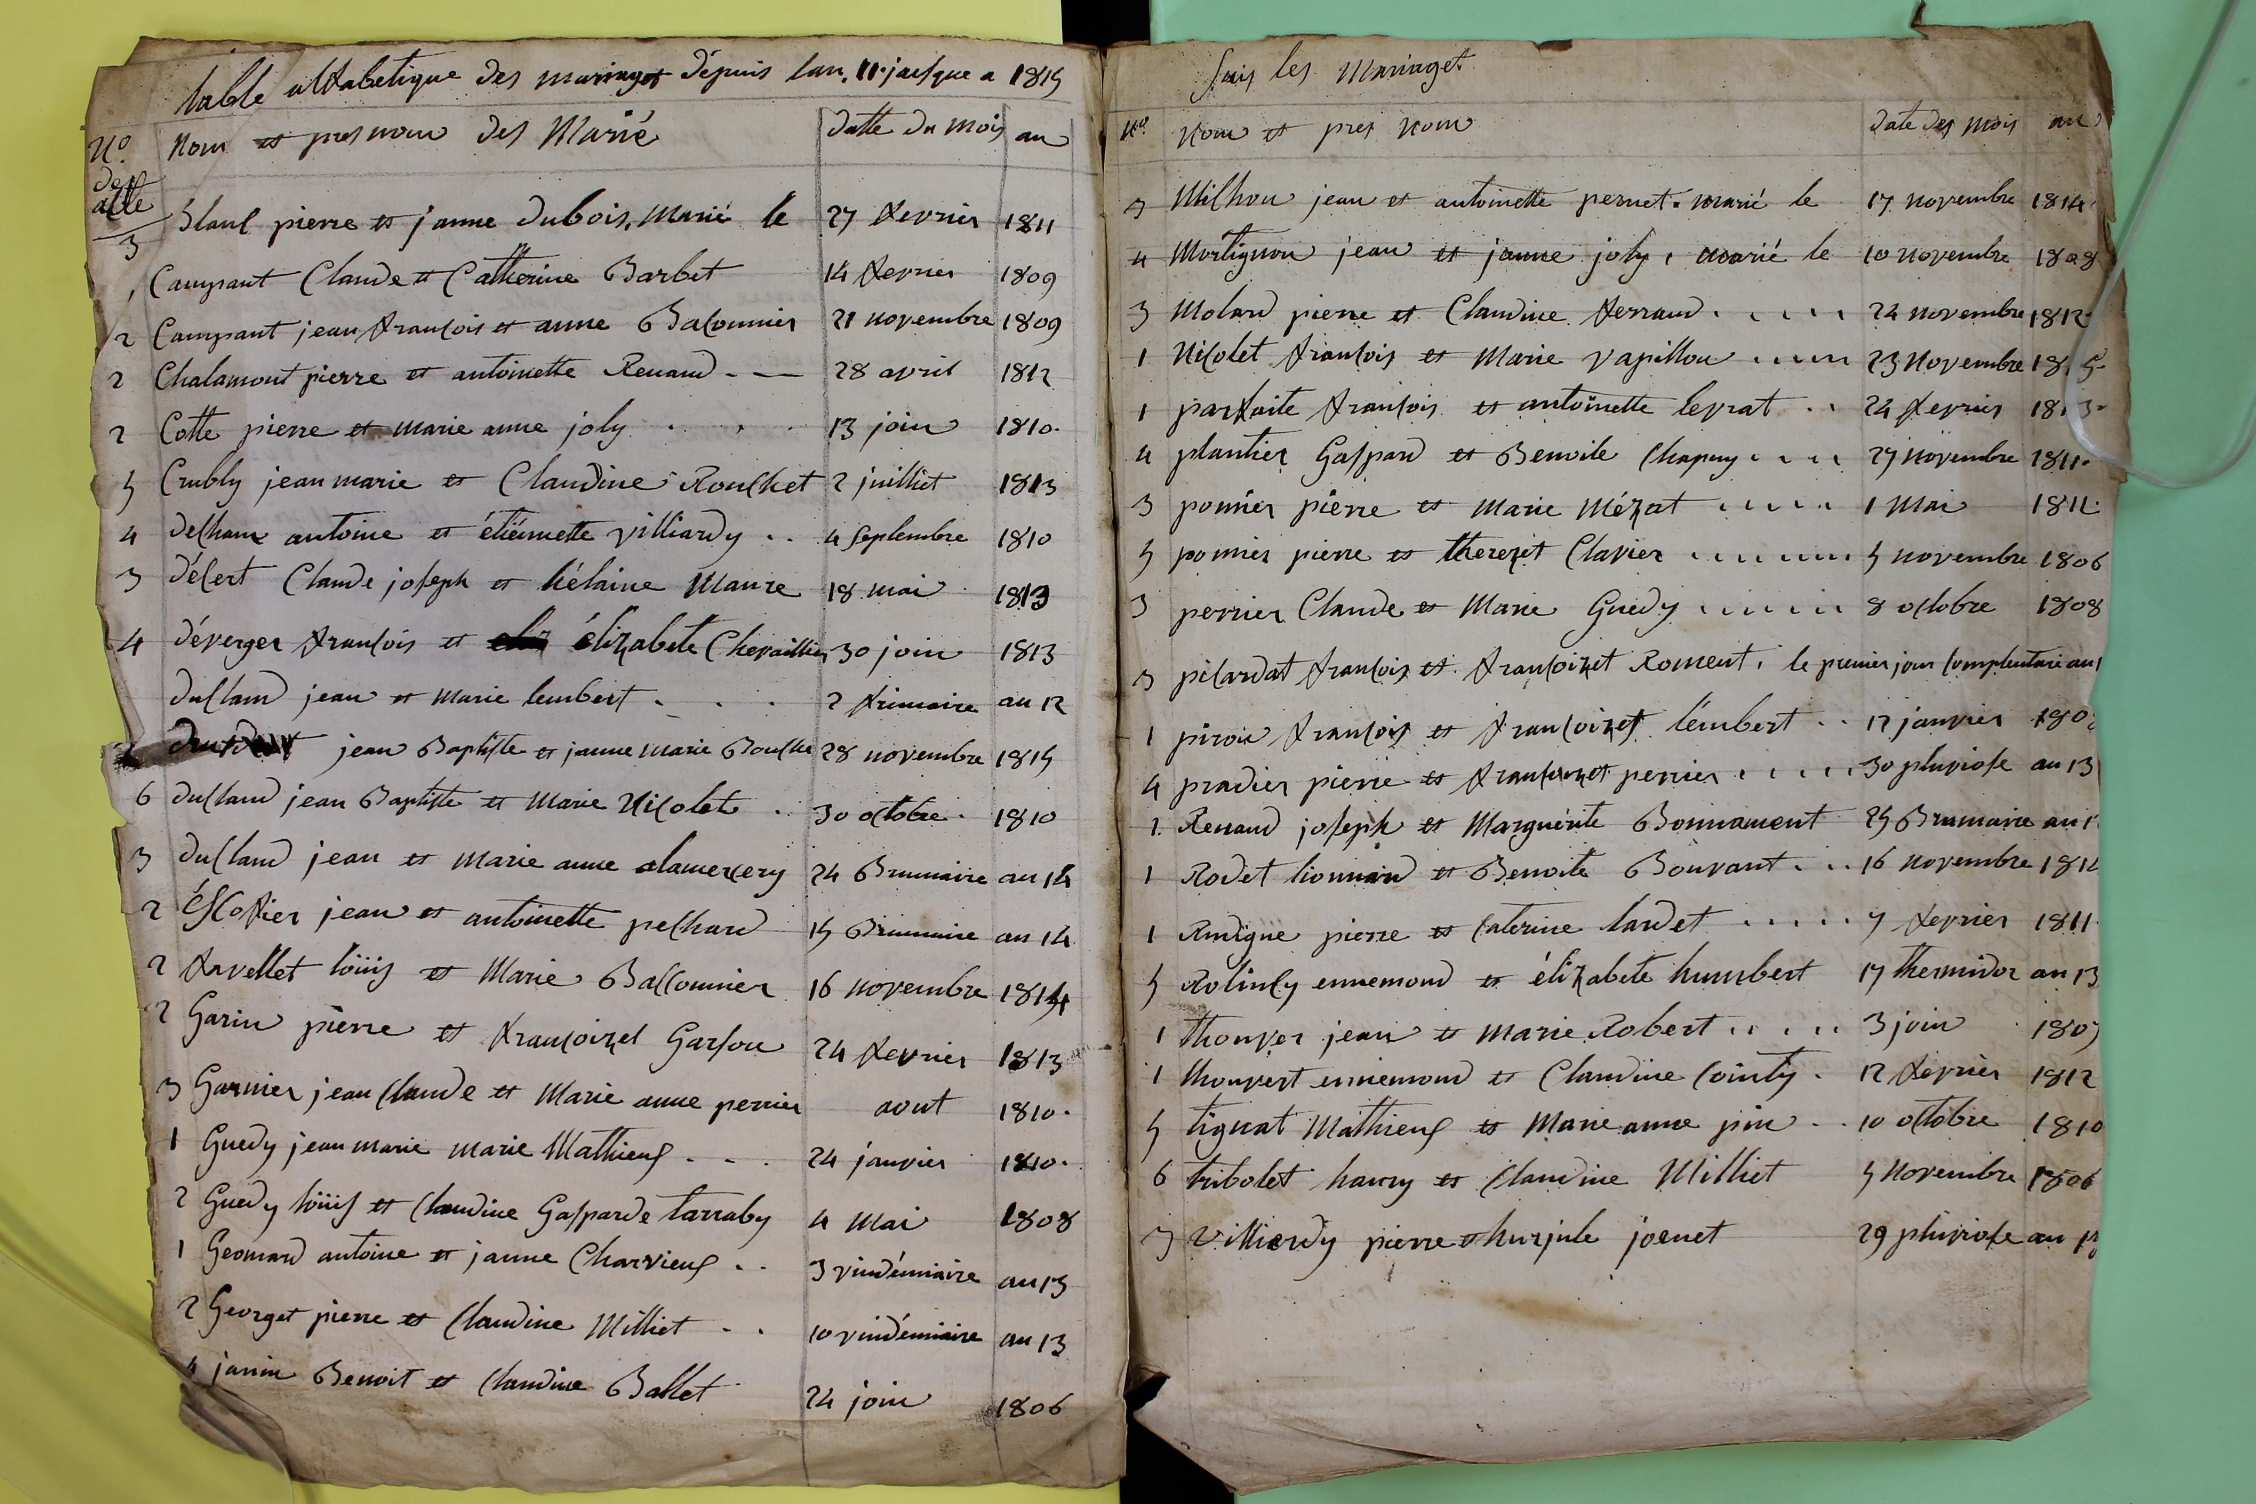 table alfabetique des mariages depuis lan 11 jusque a 1815
No. des acte Nom et presnom des Marié datte du mois an
3 Blanc pierre et janne dubois, marié le 27 fevrier 1811
1 Campant Claude et Catherine Barbet 14 fevrier 1809
2 Campant jean francois et anne Baconnier 21 novembre 1809
2 Chalamont pierre et antoinette Renaud 28 avril 1812
2 Cotte pierre et marie anne joly 13 join 1810
5 Crubly jean marie et Claudine Rouchet 2 juilliet 1813
4 antoine et étiénnette villiardy 4 Septembre 1810
3 décert Claude joseph et hélaine Maure 18 mai 1813
4 déverger francois et élizabete Chevaillier 30 join 1813
duclaud jean et marie lembert 2 frimaire an 12
jean Baptiste et janne marie Bouche 28 novembre 1815
6 duclaud jean Baptiste et Marie Nicolet 30 octobre 1810
3 duclaud jean et marie anne alamercery 24 Brumaire an 14
2 éscofier jean et antoinette pechard 15 Brumaire an 14
2 favellet loüis et Marie Bacconnier 16 novembre 1814
2 Garin pierre et francoizet Garson 24 fevrier 1813
3 Garnier jean Claude et Marie anne perrier aout 1810
1 Guedy jean marie marie Mathieuf 24 janvier 1810
2 Guedy loüis et Claudine Gasparde tarraby 4 mai 1808
1 Geomard antoine et janne Charvieuf 3 vindémiaire an 13
2 Georget pierre et Claudine Milliet 10 vindémiaire an 13
4 janin Benoit et Claudine Ballet 24 join 1806
Suis les Mariages
No. Nom et pres nom date des mois an
3 Milhon jean et antoinette pernet marié le 17 novembre 1814
4 Mortignon jean et janne joly, marié le 10 novembre 1808
3 Molard pierre et Claudine ferraud 24 novembre 1812
1 Nicolet francois et Marie vapillon 23 Novembre 1815
1 parfaite francois et antoinette levrat 24 fevrier 1813
4 plantier Gaspard et Benoite Chapuy 27 novembre 1811
3 ponnier pierre et marie Mézat 1 Mai 1811
5 ponnier pierre et therezet Clavier 5 novembre 1806
3 perrier Claude et Marie Guedy 8 octobre 1808
3 picardat francois et francoizet Roment, le premier jour complentaire an
1 piroir francois et francoizet lembert 12 janvier 180
4 pradier pierre et francoizet perrier 30 pluviose an 13
1 Renaud joseph et Marguérite Bonnament 25 Brumaire an
1 Rodet lionnard et Benoite Bouvant 16 novembre 181
1 Rudigue pierre et Caterine lardet 7 fevrier 1811
5 Rolincy ennemond et élizabete humbert 17 thermidor an 13
1 thouver jean et marie Robert 3 join 1807
1 thouvert ennemond et Claudine Cointy 12 fevrier 1812
5 tignat Mathieuf et Marie anne pin 10 octobre 1810
6 tribolet hanry et Claudine Milliet 5 Novembre 1806
3 Villierdy pierre et hurjule joenet 29 pluviose an